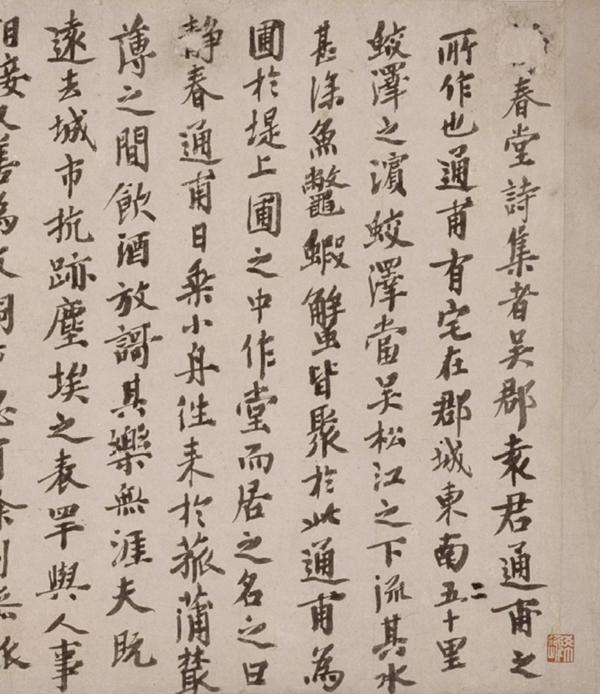 春堂詩集者吳郡袁君通甫之
所作也通甫有宅在郡城東南五十里
蛟澤之濱蛟澤當吳松江之下流其水
甚深魚鼈蝦蟹皆聚於此通甫為
圃於堤上圃之中作堂而居之名之曰
靜春通甫日乘小舟往來於菰蒲藂
薄之間飲酒放謌其樂無涯夫既
遠去城市抗跡塵埃之表罕與人事
相接又善為文詞